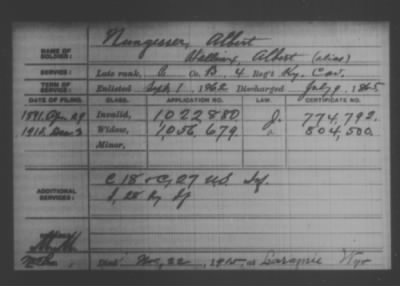 NAME OF SOLDIER: Nungesser, Albert
Albert (alias)
SERVICE: Late rank, Co. B, 4 Reg't Ky. Cav.
TERM OF SERVICE: Enlisted Sept 1, 1862 Discharged July 9, 1865
DATE OF FILING. CLASS. APPLICATION NO. LAW. CERTIFICATE NO.
1891 Apr 29 Invalid, 1,022,880 J. 774,792.
1912 Dec 3 Widow, 1,056,679 804,500.
Minor,
ADDITIONAL SERVICES: C 18 & C, 27 U.S. Inf.
Died Nov, 22, 1912, at Laramie Wyo